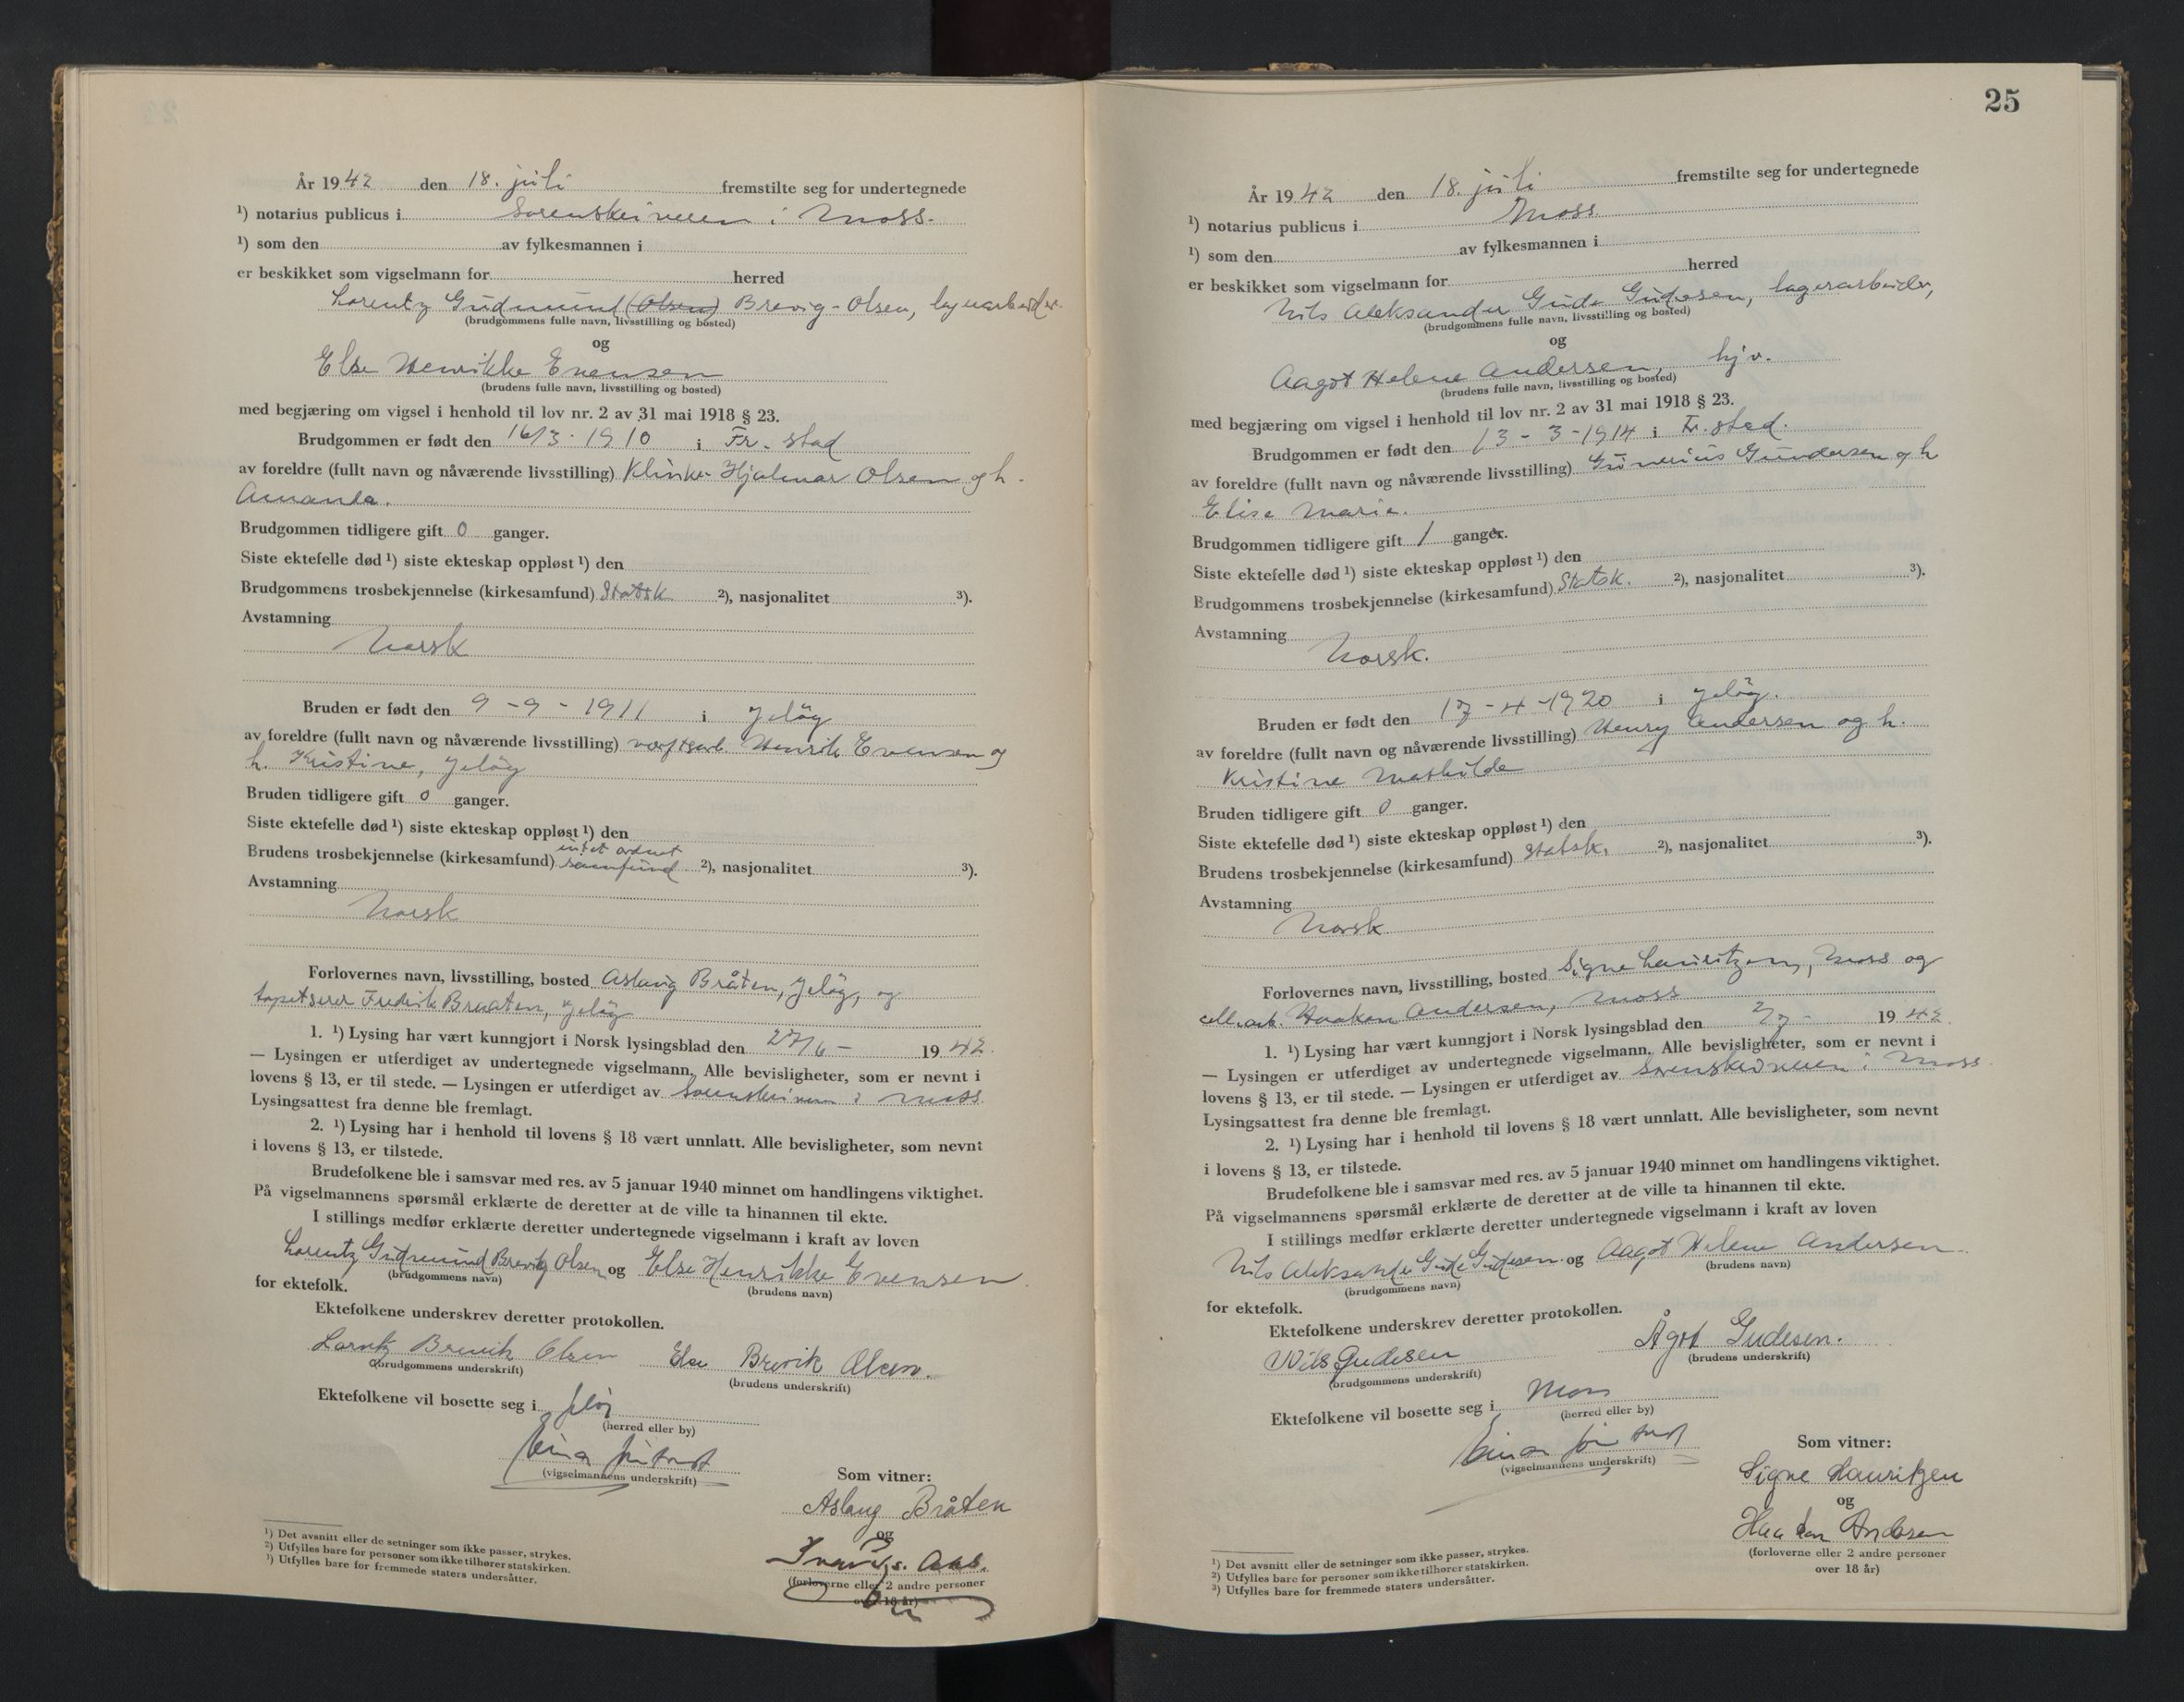 År 1942 den 18. juli fremstilte seg for undertegnede
¹) notarius publicus i Sorenskriveren i Moss.
¹) som den av fylkesmannen i
er beskikket som vigselmann for herred
Lorentz Gudmund (Olsen) Brevig-Olsen, lagerarbeider.
(brudgommens fulle navn, livsstilling og bosted)
og
Else Henrikke Evensen
(brudens fulle navn, livsstilling og bosted)
med begjæring om vigsel i henhold til lov nr. 2 av 31 mai 1918 § 23.
Brudgommen er født den 16/3-1910 i Fr.stad
av foreldre (fullt navn og nåværende livsstilling) Klinker Hjalmar Olsen og h.
Amanda.
Brudgommen tidligere gift 0 ganger.
Siste ektefelle død ¹) siste ekteskap oppløst ¹) den
Brudgommens trosbekjennelse (kirkesamfund) Statsk ²), nasjonalitet ³).
Avstamning
Norsk
Bruden er født den 9-9-1911 i Jeløy
av foreldre (fullt navn og nåværende livsstilling) verftsarb. Henrik Evensen og
h. Kristine, Jeløy
Bruden tidligere gift 0 ganger.
Siste ektefelle død ¹) siste ekteskap oppløst ¹) den
Brudens trosbekjennelse (kirkesamfund) intet ordnet samfund ²), nasjonalitet ³).
Avstamning
Norsk
Forlovernes navn, livsstilling, bosted Aslaug Bråten, Jeløy, og
tapetserer Frederik Braaten, Jeløy
1. ¹) Lysing har vært kunngjort i Norsk lysingsblad den 27/6- 1942.
— Lysingen er utferdiget av undertegnede vigselmann. Alle bevisligheter, som er nevnt i
lovens § 13, er til stede. — Lysingen er utferdiget av Sorenskriveren i Moss.
Lysingsattest fra denne ble fremlagt.
2. ¹) Lysing har i henhold til lovens § 18 vært unnlatt. Alle bevisligheter, som nevnt
i lovens § 13, er tilstede.
Brudefolkene ble i samsvar med res. av 5 januar 1940 minnet om handlingens viktighet.
På vigselmannens spørsmål erklærte de deretter at de ville ta hinannen til ekte.
I stillings medfør erklærte deretter undertegnede vigselmann i kraft av loven
Lorentz Gudmund Brevig Olsen og Else Henrikke Evensen
(brudgommens navn) (brudens navn)
for ektefolk.
Ektefolkene underskrev deretter protokollen.
Lorentz Brevik Olsen Else Brevik Olsen.
(brudgommens underskrift) (brudens underskrift)
Ektefolkene vil bosette seg i Jeløy
(herred eller by)
(vigselmannens underskrift)
Som vitner:
Aslaug Bråten
og
(forloverne eller 2 andre personer
over 18 år)
¹) Det avsnitt eller de setninger som ikke passer, strykes.
²) Utfylles bare for personer som ikke tilhører statskirken.
³) Utfylles bare for fremmede staters undersåtter.
25
År 1942 den 18. juli fremstilte seg for undertegnede
¹) notarius publicus i Moss
¹) som den av fylkesmannen i
er beskikket som vigselmann for herred
Nils Aleksander Gude Gudesen, lagerarbeider,
(brudgommens fulle navn, livsstilling og bosted)
og
Aagot Helene Andersen, hjv.
(brudens fulle navn, livsstilling og bosted)
med begjæring om vigsel i henhold til lov nr. 2 av 31 mai 1918 § 23.
Brudgommen er født den 13-3-1914 i Fr.stad.
av foreldre (fullt navn og nåværende livsstilling) Gunerius Gundersen og h
Elise Marie.
Brudgommen tidligere gift 1 ganger.
Siste ektefelle død ¹) siste ekteskap oppløst ¹) den
Brudgommens trosbekjennelse (kirkesamfund) Statsk. ²), nasjonalitet ³).
Avstamning
Norsk.
Bruden er født den 17-4-1920 i Jeløy.
av foreldre (fullt navn og nåværende livsstilling) Henry Andersen og h.
Kristine Mathilde
Bruden tidligere gift 0 ganger.
Siste ektefelle død ¹) siste ekteskap oppløst ¹) den
Brudens trosbekjennelse (kirkesamfund) Statsk. ²), nasjonalitet ³).
Avstamning
Norsk
Forlovernes navn, livsstilling, bosted Signe Lauritzen, Moss og
cell.arb. Haakon Andersen, Moss
1. ¹) Lysing har vært kunngjort i Norsk lysingsblad den 2/7- 1942.
— Lysingen er utferdiget av undertegnede vigselmann. Alle bevisligheter, som er nevnt i
lovens § 13, er til stede. — Lysingen er utferdiget av Sorenskriveren i Moss
Lysingsattest fra denne ble fremlagt.
2. ¹) Lysing har i henhold til lovens § 18 vært unnlatt. Alle bevisligheter, som nevnt
i lovens § 13, er tilstede.
Brudefolkene ble i samsvar med res. av 5 januar 1940 minnet om handlingens viktighet.
På vigselmannens spørsmål erklærte de deretter at de ville ta hinannen til ekte.
I stillings medfør erklærte deretter undertegnede vigselmann i kraft av loven
Nils Aleksander Gude Gudesen og Aagot Helene Andersen
(brudgommens navn) (brudens navn)
for ektefolk.
Ektefolkene underskrev deretter protokollen.
Nils Gudesen Ågot Gudesen.
(brudgommens underskrift) (brudens underskrift)
Ektefolkene vil bosette seg i Moss
(herred eller by)
(vigselmannens underskrift)
Som vitner:
Signe Lauritzen
og
Haakon Andersen
(forloverne eller 2 andre personer
over 18 år)
¹) Det avsnitt eller de setninger som ikke passer, strykes.
²) Utfylles bare for personer som ikke tilhører statskirken.
³) Utfylles bare for fremmede staters undersåtter.